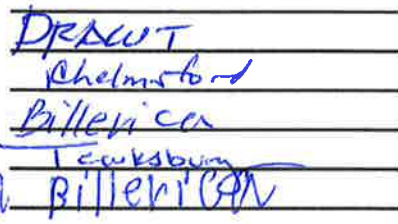 DRACUT
Chelmsford
Billerica
Tewksbury
BILLERICA